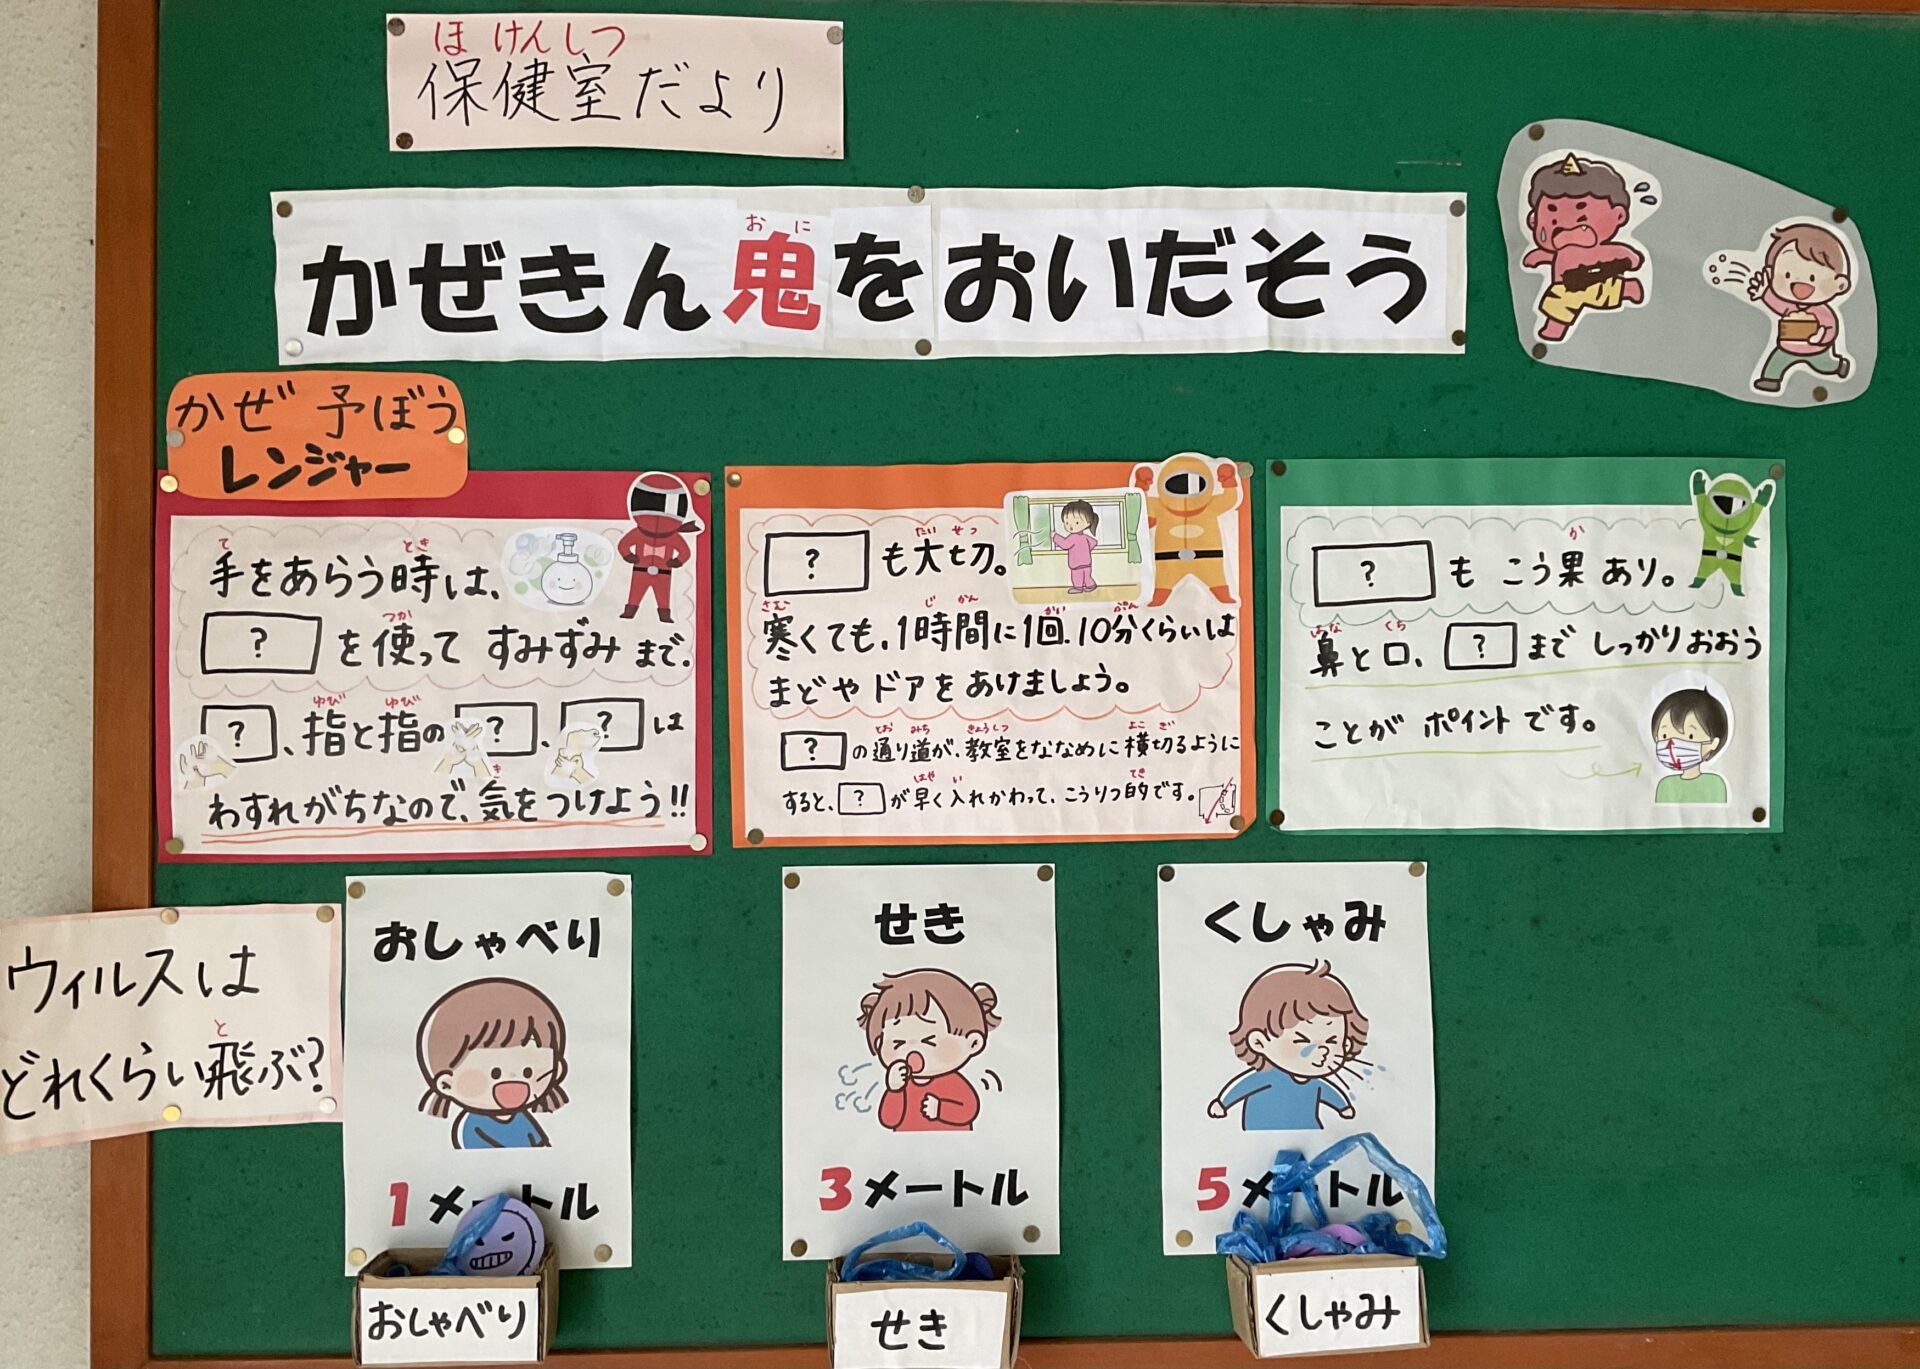 ほけんしつ
保健室だより
おに
かぜきん鬼をおいだそう
かぜ予ぼう
レンジャー
て とき
手をあらう時は、
つか
?を使ってすみずみまで。
ゆび ゆび
?、指と指の?、?は
き
わすれがちなので、気をつけよう!!
たい せつ
?も大切。
さむ じ かん かい ぷん
寒くても、1時間に1回、10分くらいは
まどやドアをあけましょう。
とお みち きょうしつ よこ ぎ
?の通り道が、教室をななめに横切るように
はや い てき
すると、?が早く入れかわって、こうりつ的です。
か
?もこう果あり。
はな くち
鼻と口、?までしっかりおおう
ことがポイントです。
ウィルスは
と
どれくらい飛ぶ?
おしゃべり
1メートル
おしゃべり
せき
3メートル
せき
くしゃみ
5メートル
くしゃみ